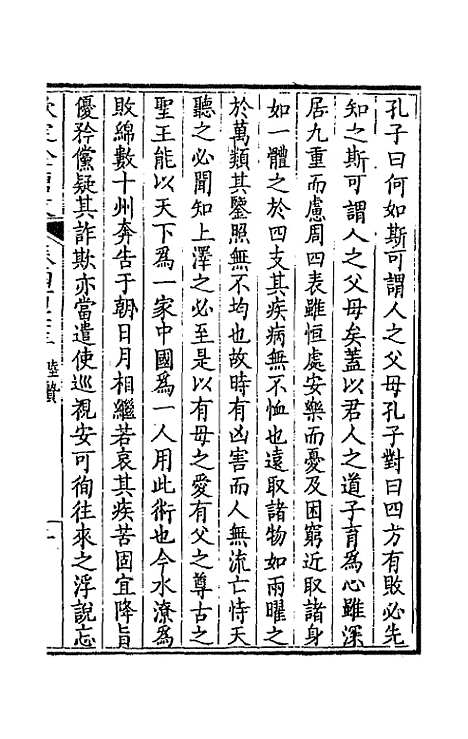 孔子曰何如斯可謂人之父母孔子對曰四方有敗必先
知之斯可謂人之父母矣蓋以君人之道子育為心雖深
居九重而慮周四表雖恒處安樂而憂及困窮近取諸身
如一體之於四支其疾病無不恤也遠取諸物如兩曜之
於萬類其鑒照無不均也故時有凶害而人無流亡恃天
聽之必聞知上澤之必至是以有母之愛有父之尊古之
聖王能以天下為一家中國為一人用此術也今水潦為
敗綿數十州奔告于朝日月相繼若哀其疾苦固宜降旨
優矜儻疑其詐欺亦當遣使巡視安可徇往來之浮說忘
陸贄